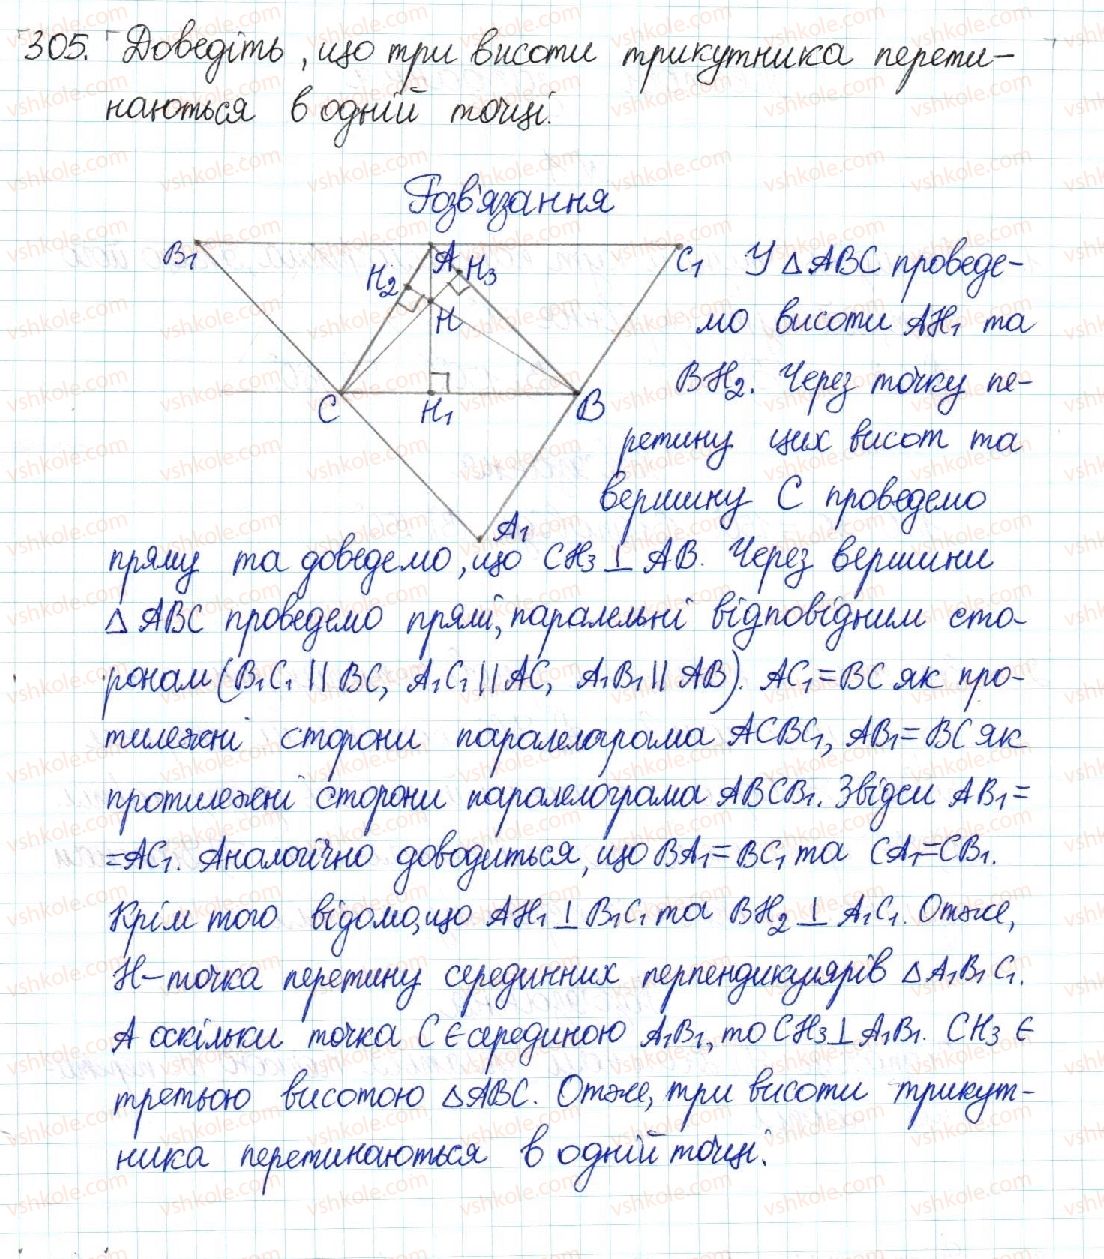 305. Доведіть, що три висоти трикутника перети-
наються в одній точці.
Розв'язання
B₁ A C₁
H₂ H₃
H
C H₁ B
A₁
У △ABC проведе-
мо висоти AH₁ та
BH₂. Через точку пе-
ретину цих висот та
вершину C проведемо
пряму та доведемо, що CH₃⊥AB. Через вершини
△ABC проведемо прямі, паралельні відповідним сто-
ронам (B₁C₁ || BC, A₁C₁ || AC, A₁B₁ || AB). AC₁=BC як про-
тилежні сторони паралелограма ACBC₁, AB₁=BC як
протилежні сторони паралелограма ABCB₁. Звідси AB₁=
=AC₁. Аналогічно доводиться, що BA₁=BC₁ та CA₁=CB₁.
Крім того відомо, що AH₁⊥B₁C₁ та BH₂⊥A₁C₁. Отже,
H-точка перетину серединних перпендикулярів △A₁B₁C₁.
А оскільки точка C є серединою A₁B₁, то CH₃⊥A₁B₁. CH₃ є
третьою висотою △ABC. Отже, три висоти трикут-
ника перетинаються в одній точці.
vshkole.com